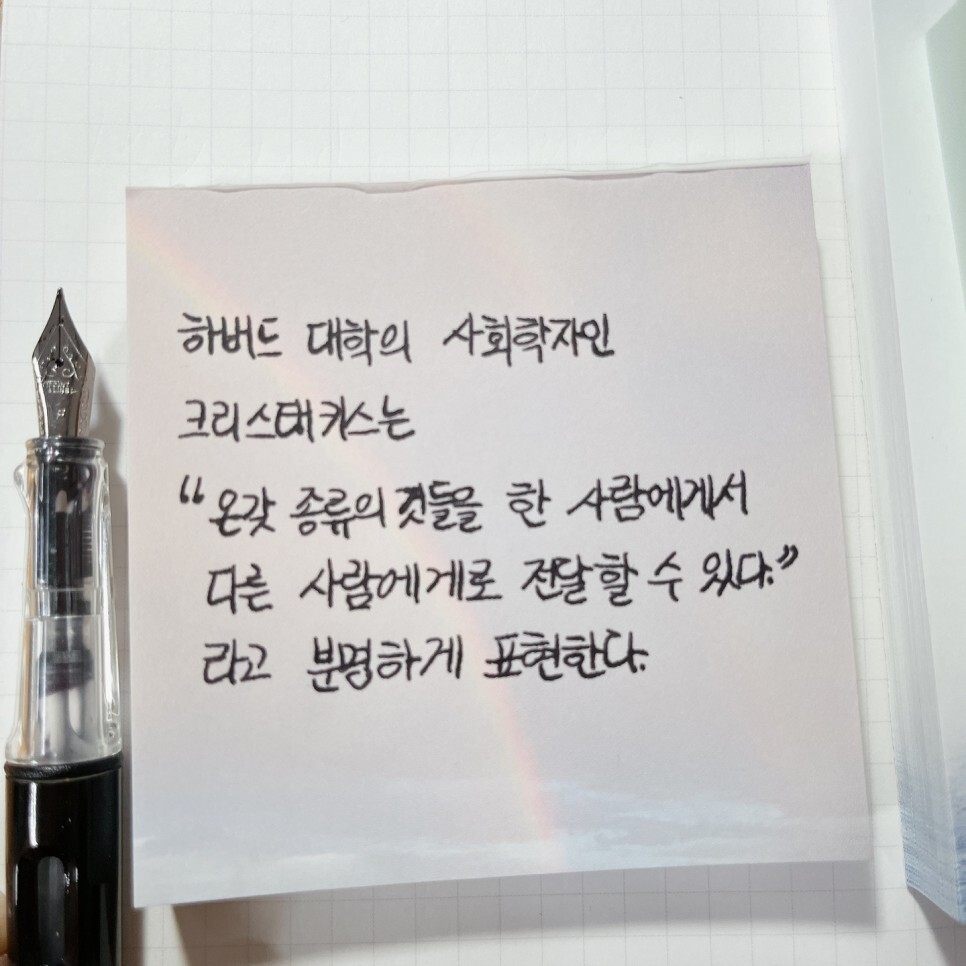 하버드 대학의 사회학자인
크리스태키스는
“온갖 종류의 것들을 한 사람에게서
다른 사람에게로 전달할 수 있다.”
라고 분명하게 표현한다.